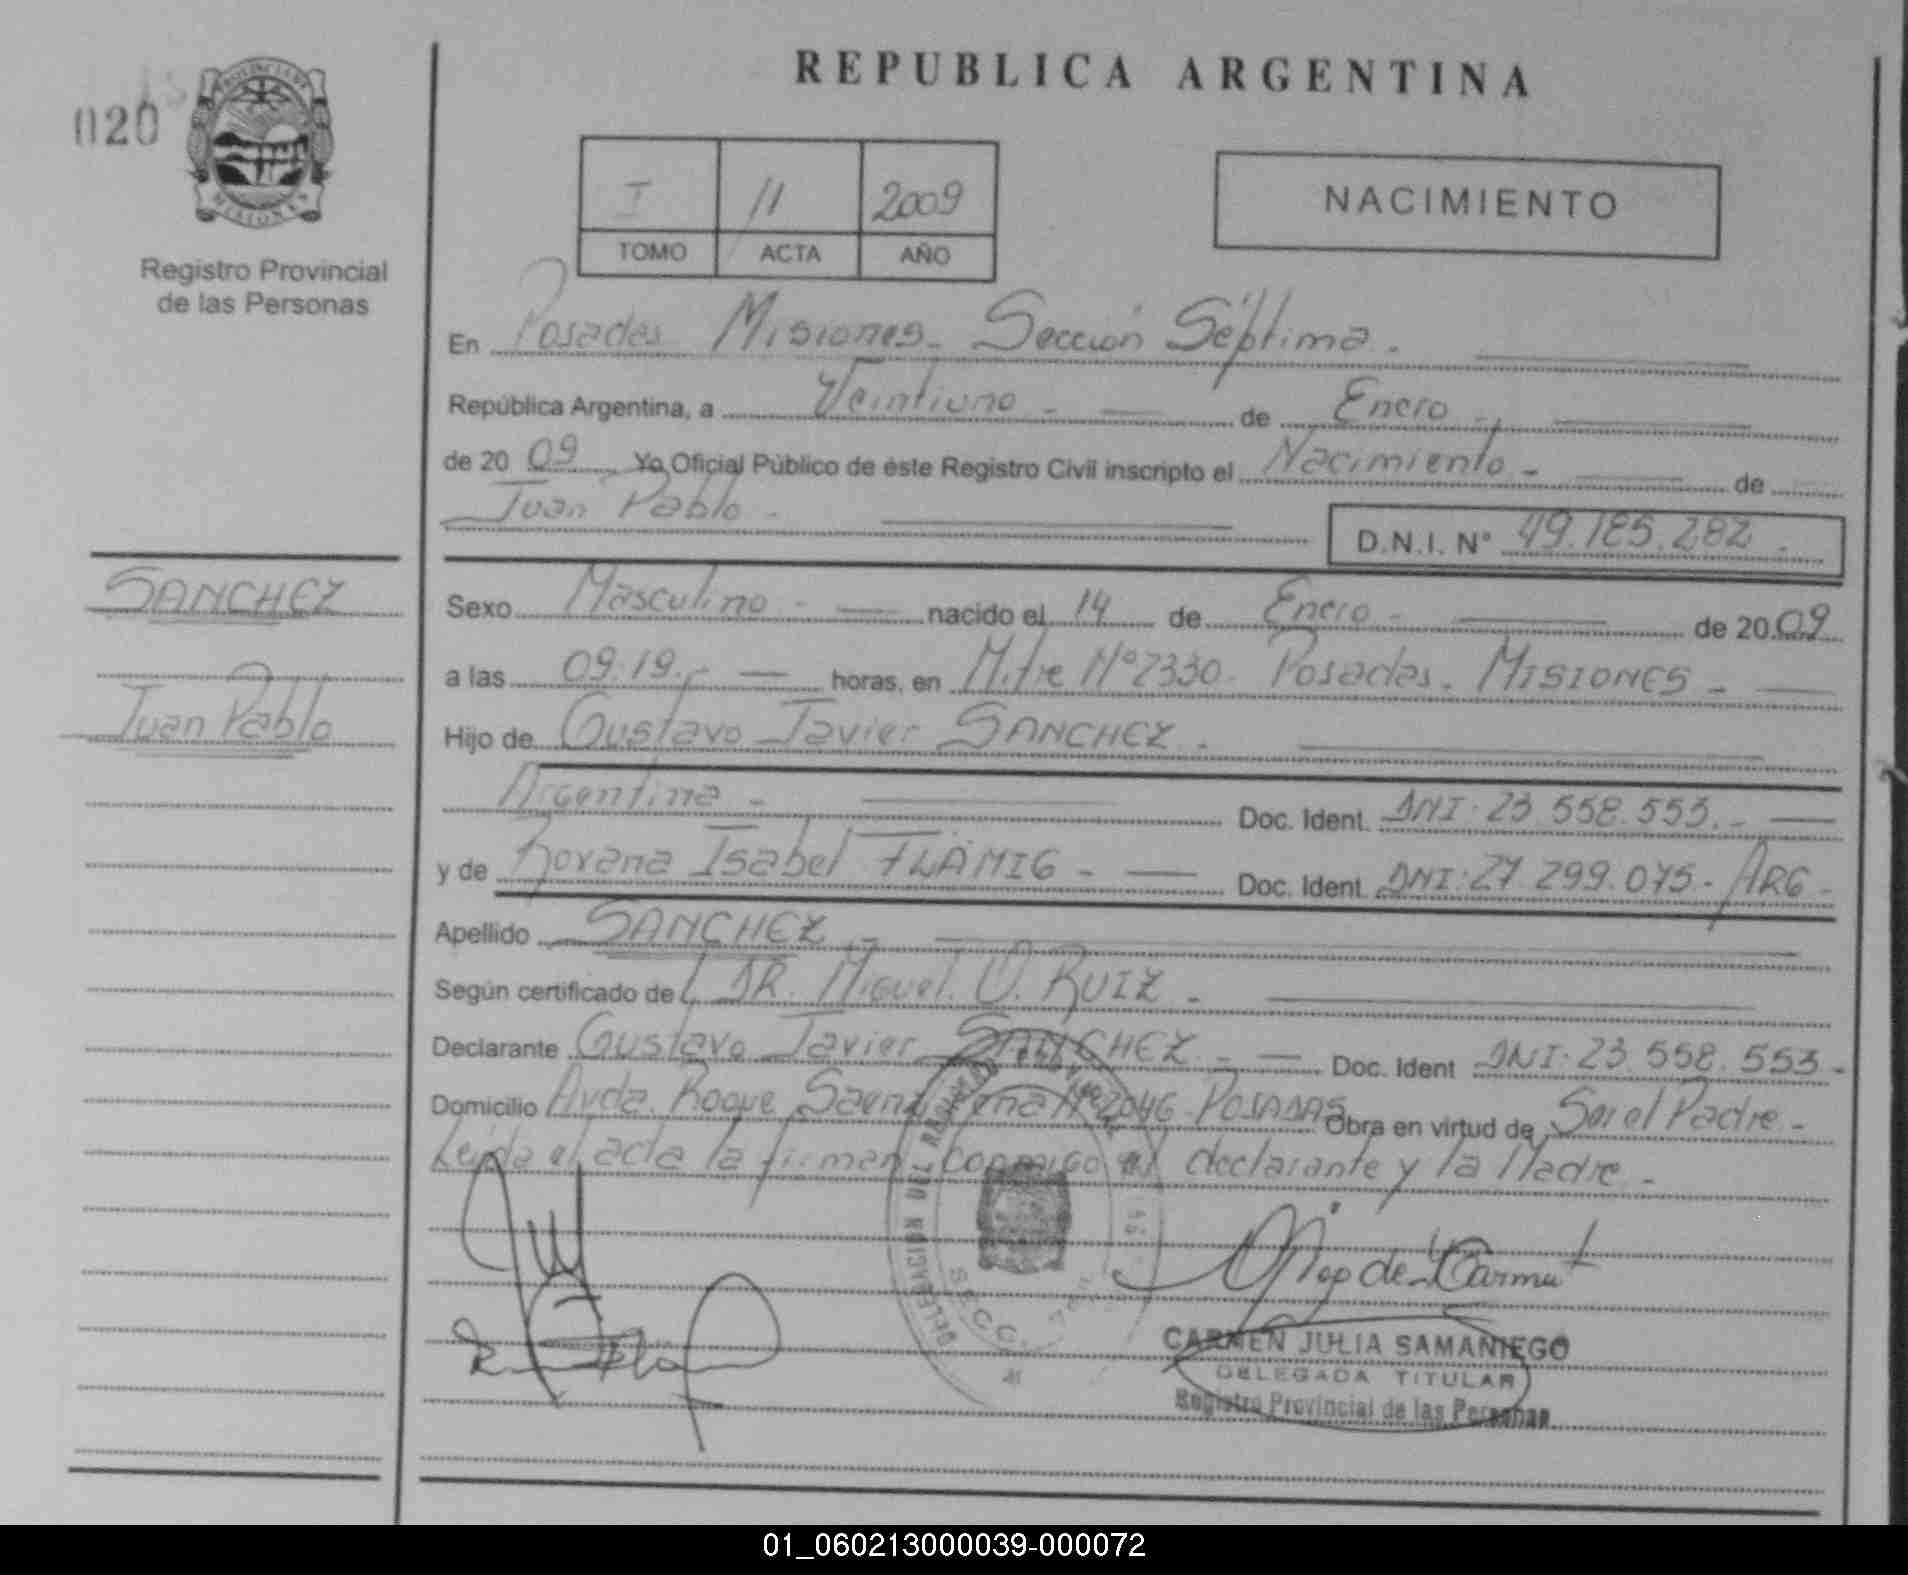 020
PROVINCIA DE
MISIONES
Registro Provincial
de las Personas
REPUBLICA ARGENTINA
I 11 2009
TOMO ACTA AÑO
NACIMIENTO
En Posadas Misiones - Sección Séptima -
República Argentina, a Veintiuno - de Enero -
de 20 09 Yo Oficial Público de éste Registro Civil inscripto el Nacimiento - de
Juan Pablo -
D.N.I. N° 49.185.282 -
SANCHEZ
Juan Pablo
Sexo Masculino - nacido el 14 de Enero - de 20 09
a las 09:19.- horas, en Mitre N°2330 - Posadas - MISIONES -
Hijo de Gustavo Javier SANCHEZ -
Argentina - Doc. Ident. DNI: 23.558.553. -
y de Roxana Isabel FLÄMIG - Doc. Ident. DNI: 27.299.075 - ARG -
Apellido SANCHEZ -
Según certificado de DR. Miguel. O. RUIZ -
Declarante Gustavo Javier SANCHEZ - Doc. Ident DNI: 23.558.553 -
Domicilio Avda. Roque Saenz Peña N°2046 - POSADAS Obra en virtud de Ser el Padre -
Leída el acta la firman conmigo el declarante y la Madre -
DELEGACION DEL REGISTRO PROVINCIAL
SECC.
CARMEN JULIA SAMANIEGO
DELEGADA TITULAR
Registro Provincial de las Personas
01_060213000039-000072